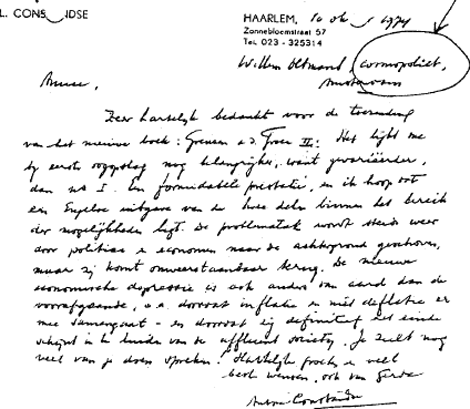 L. CONS NDSE
HAARLEM, 10 okt. 1974
Zonnebloemstraat 57
Tel. 023 - 325314
Willem Oltmans, cosmopoliet,
Amsterdam
Amice,
Zeer hartelijk bedankt voor de toezending
van het nieuwe boek: Grenzen a.d. Groei II. Het lijkt me
bij eerste oogopslag nog belangrijker, want gevarieerder,
dan no I. Een formidabele prestatie, en ik hoop dat
een Engelse uitgave van de twee delen binnen het bereik
der mogelijkheden ligt. De problematiek wordt steeds weer
door politici en economen naar de achtergrond geschoven,
maar zij komt onweerstaanbaar terug. De nieuwe
economische depressie is ook anders van aard dan de
voorafgaande, o.a. doordat inflatie en niet deflatie er
mee samengaat - en doordat zij definitief het einde
schijnt in te luiden van de affluent society. Je zult nog
veel van je doen spreken! Hartelijke groeten en veel
beste wensen, ook van Gerda
Anton Constandse